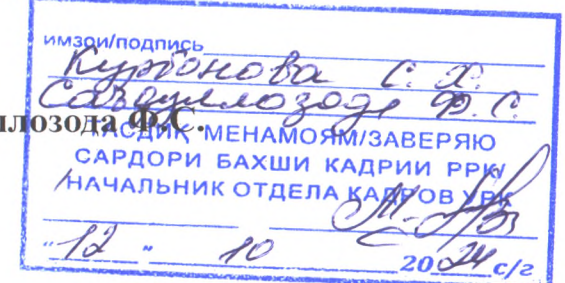 имзои/подпись
Курбонова С. Х.
Саъдуллозода Ф. С.
ллозода Ф.С.
ТАСДИҚ МЕНАМОЯМ/ЗАВЕРЯЮ
САРДОРИ БАХШИ КАДРИИ РРК/
НАЧАЛЬНИК ОТДЕЛА КАДРОВ УРК
"12" 10 2024 с/г